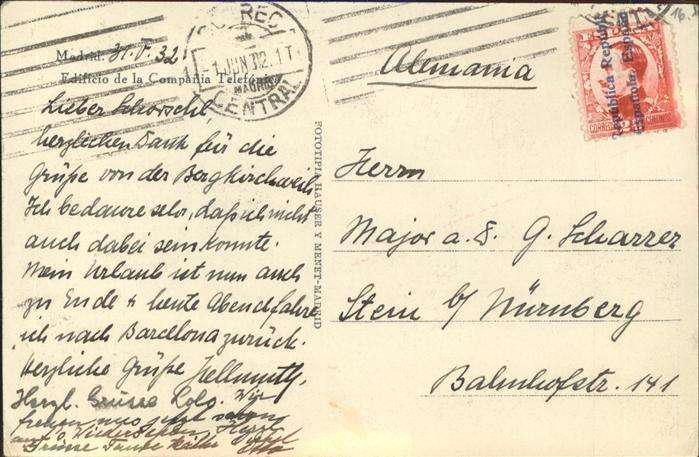 Madrid. 31.V.32
Edificio de la Compañía Telefónica
CORREO
1 JUN 32. 1 T
MADRID
CENTRAL
Lieber Schorschl,
herzlichen Dank für die
Grüße von der Bergkirchweih
Ich bedaure sehr, daß ich nicht
auch dabei sein konnte.
Mein Urlaub ist nun auch
zu Ende & heute Abend fahre
ich nach Barcellona zurück.
Herzliche Grüße Hellmuth
Herzl. Grüsse Wir
freuen uns
auf's Wiedersehen
Grüsse Tante Käthe
FOTOTIPIA HAUSER Y MENET-MADRID
Alemania
República
Española.
16
Herrn
Major a. D. G. Scharrer
Stein b/ Nürnberg
Bahnhofstr. 141